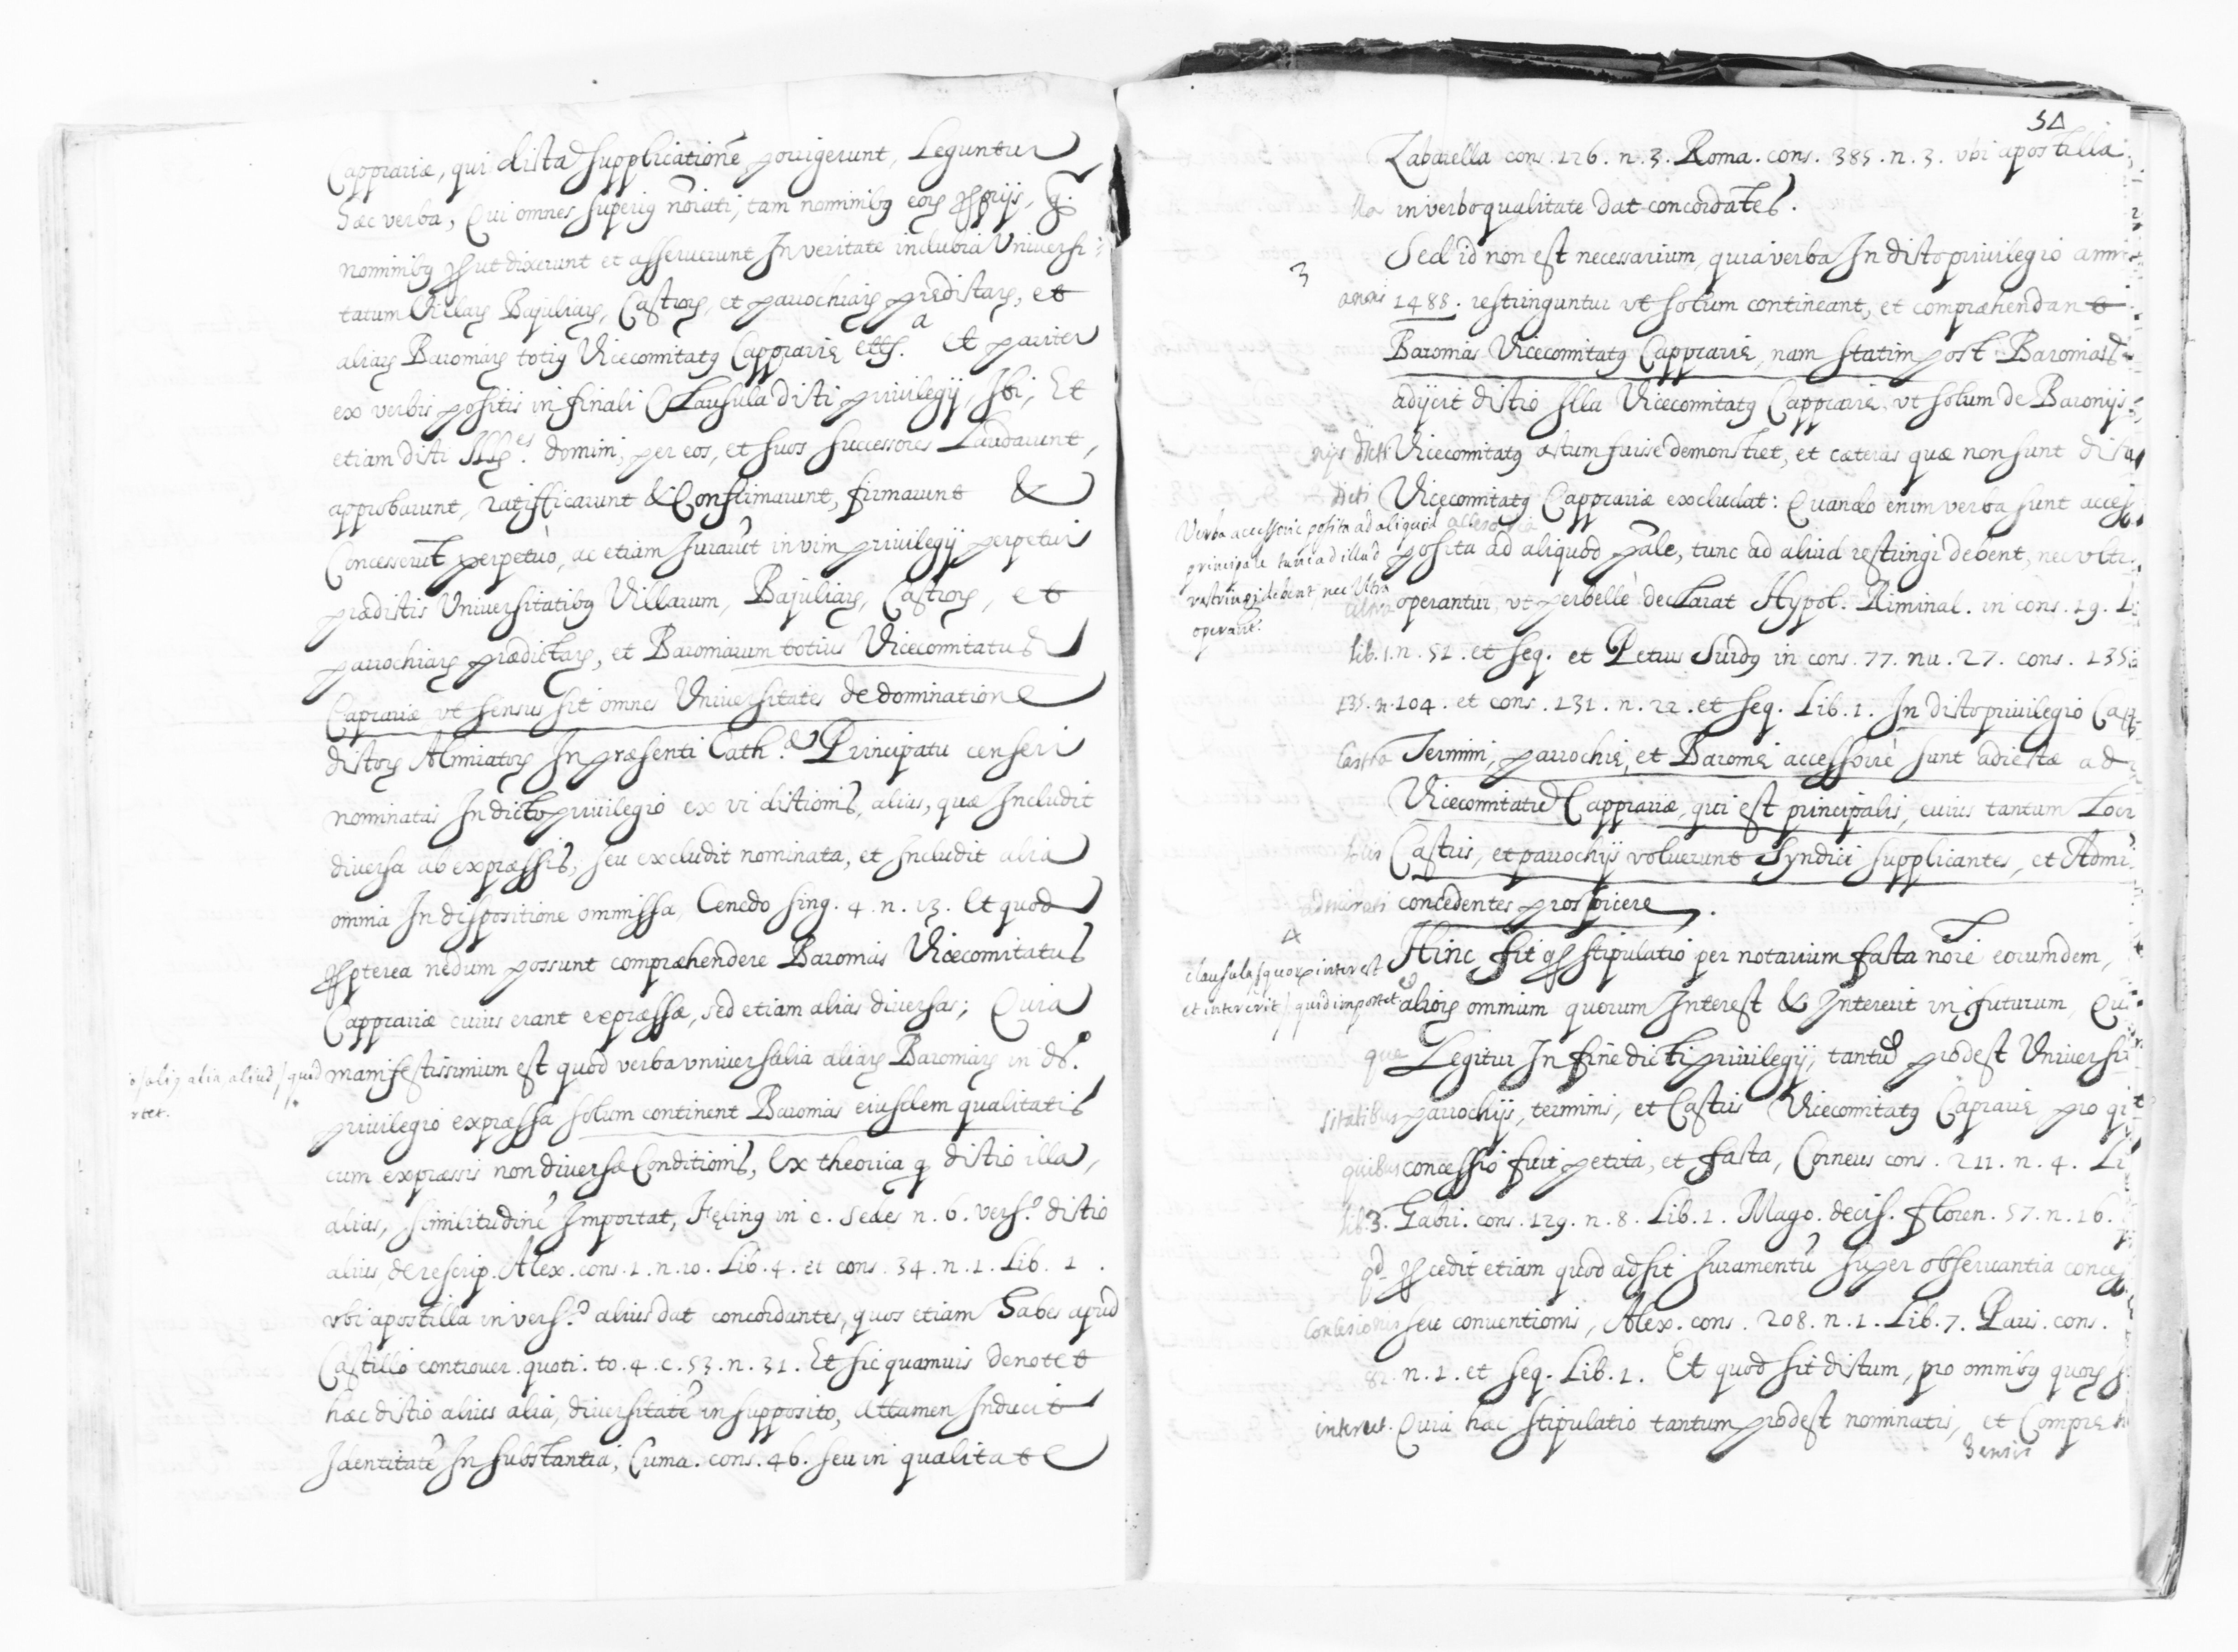 Capprariæ, qui dicta supplicatione porrigerunt, Leguntur
hæc verba, Qui omnes superiꝰ nõiati, tam nominibꝰ eoꝝ ꝓprijs, q.
nominibꝰ ꝓ ut dixerunt et asseruerunt In veritate indubia Universi-
tatum Villaꝝ Bajuliaꝝ, Castroꝝ, et parrochiaꝝ prędictaꝝ, et
aliaꝝ Baroniaꝝ totiꝰ Vicecomitatꝰ Capprarię ettᵃ. et pariter
ex verbis positis in finali Clausula dicti privilegij, Ibi, Et
etiam dicti Illᵉˢ. domini, per eos, et suos successores Laudarunt,
approbarunt, ratifficarunt & Confirmarunt, firmarunt &
Concesserut perpetuò, ac etiam Jurarũt in vim privilegij perpetui
prædictis Universitatibꝰ Villarum, Bajuliaꝝ, Castroꝝ, et
parrochiaꝝ prædictaꝝ, et Baroniarum totius Vicecomitatus
Caprariæ vt sensus sit omnes Universitates de dominatione
dictoꝝ Almiratoꝝ In præsenti Cathᵃ. Principatu censeri
nominatas In dicto privilegio ex vi dictionis, alius, quæ Includit
diversa ab expræssis, seu excludit nominata, et Includit alia
omnia In dispositione ommissa, Cenedo sing. 4. n. 13. Et quod
ꝓpterea nedum possunt compræhendere Baronias Vicecomitatus
Capprariæ cuius erant expræssæ, sed etiam alias diversas; Quia
manifestissimum est quod verba vniversalia aliaꝝ Baroniaꝝ in dᵒ.
privilegio expræssa solum continent Baronias eiusdem qualitatis
cum expræssis non diversæ Conditionis, Ex theorica q dictio illa,
alius, similitudinẽ Importat, Fęlinꝰ in c. Sedes n. 6. versᵒ. dictio
alius, de rescrip. Alex. cons. 1. n. 10. Lib. 4. et cons. 34. n. 1. Lib. 1.
vbi apostilla in versᵒ. alius dat concordantes, quos etiam habes apud
Castillo controver. quoti. to. 4. c. 53. n. 31. Et sic quamuis denotet
hæc dictio alius alia, diversitatẽ in supposito, Attamen Inducit
Identitatẽ In substantia, Cuma. cons. 46. seu in qualitate
alia aliud, quid
54
Zabarella cons. 126. n. 3. Roma. cons. 385. n. 3. vbi apostilla
in verbo qualitate dat concordãtes.
3
Sed id non est necessarium, quia verba In dicto privilegio anni
annis 1488. restringuntur vt solum contineant, et compræhendant
Baronias Vicecomitatꝰ Capprarię, nam statim post Baronias
adijcit dictio Illa Vicecomitatꝰ Capprarię, vt solum de Baronijs
nijs dicti Vicecomitatꝰ actum fuisse demonstret, et cæteras quæ non sunt dicti
dicti Vicecomitatꝰ Capprariæ excludat: Quando enim verba sunt access
Verba accessorie posita ad aliquod
principale tunc ad illud
restringi debent, nec Ultra
operant.
posita ad aliquod pãle, tunc ad aliud restringi debent, nec vltr
operantur, vt perbellè declarat Hypol. Riminal. in cons. 19. Li
lib. 1. n. 51. et seq. et Petrus Surdꝰ in cons. 77. nu. 27. cons. 135
135. n. 104. et cons. 131. n. 22. et seq. Lib. 1. In dicto privilegio Cast
Castra Termini, parrochię, et Baronię accessoriè sunt adiectæ ad
Vicecomitatũ Capprariæ, qui est principalis, cuius tantum Locis
Castris, et parrochijs voluerunt Syndici supplicantes, et Admi
admirati concedentes prospicere.
4
clausula quoꝝ interest
et intererit / quid importet
Hinc fit qꝫ stipulatio per notarium facta nõie eorumdem,
alioꝝ omnium quorum Interest & Intererit in futurum, Qu
que Legitur In fine dicti privilegij, tantũ prodest Universi
sitatibus parrochijs, terminis, et Castris Vicecomitatꝰ Caprarię pro qi
quibus concessio fuit petita, et facta, Corneus cons. 211. n. 4. Li
lib. 3. Gabri. cons. 129. n. 8. Lib. 1. Mago. decis. floren. 57. n. 16.
qd ꝓcedit etiam quod adsit Juramentũ super observantia conces
concesionis seu conventionis, Alex. cons. 208. n. 1. Lib. 7. Paris. cons.
82. n. 1. et seq. Lib. 1. Et quod sit dictum, pro omnibꝰ quoꝝ
interest. Quia hæc stipulatio tantum prodest nominatis, et Compreh
hensis